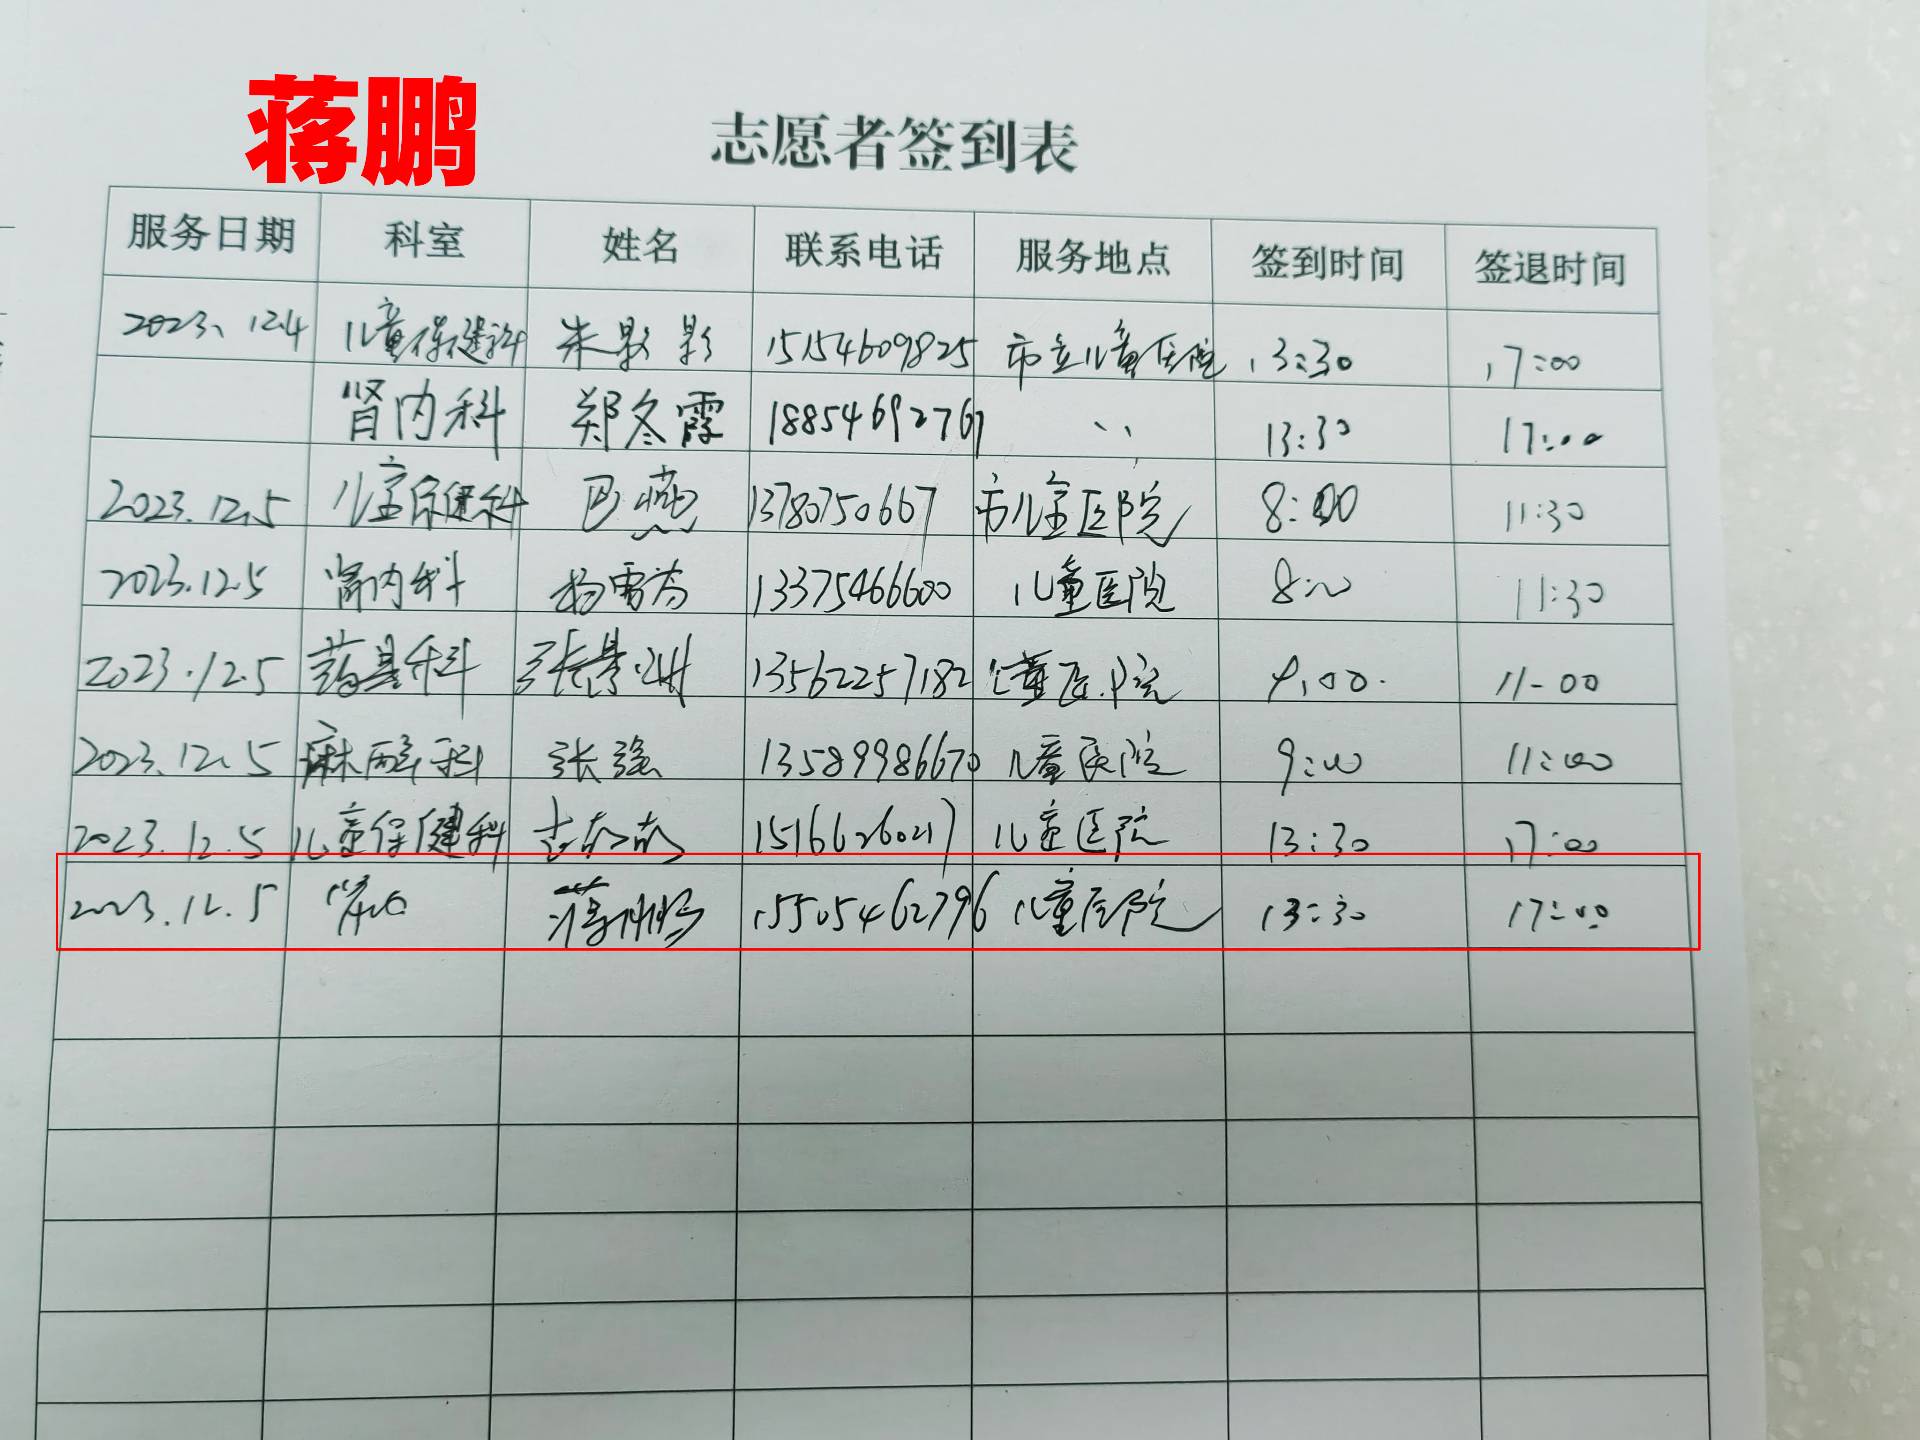 蒋鹏
志愿者签到表
服务日期 科室 姓名 联系电话 服务地点 签到时间 签退时间
2023.12.4 儿童保健科 朱影影 15154609825 市立儿童医院 13:30 17:00
肾内科 郑冬霞 18854692767 13:30 17:00
2023.12.5 儿童保健科 巴燕 13780750667 市儿童医院 8:00 11:30
2023.12.5 肾内科 杨雷芳 13375466600 儿童医院 8:00 11:30
2023.12.5 科 张景 13562257182 儿童医院 9:00 11-00
2023.12.5 麻醉科 张强 13589986670 儿童医院 9:00 11:00
2023.12.5 儿童保健科 15166260217 儿童医院 13:30 17:00
2023.12.5 蒋鹏 15505462796 儿童医院 13:30 17:00